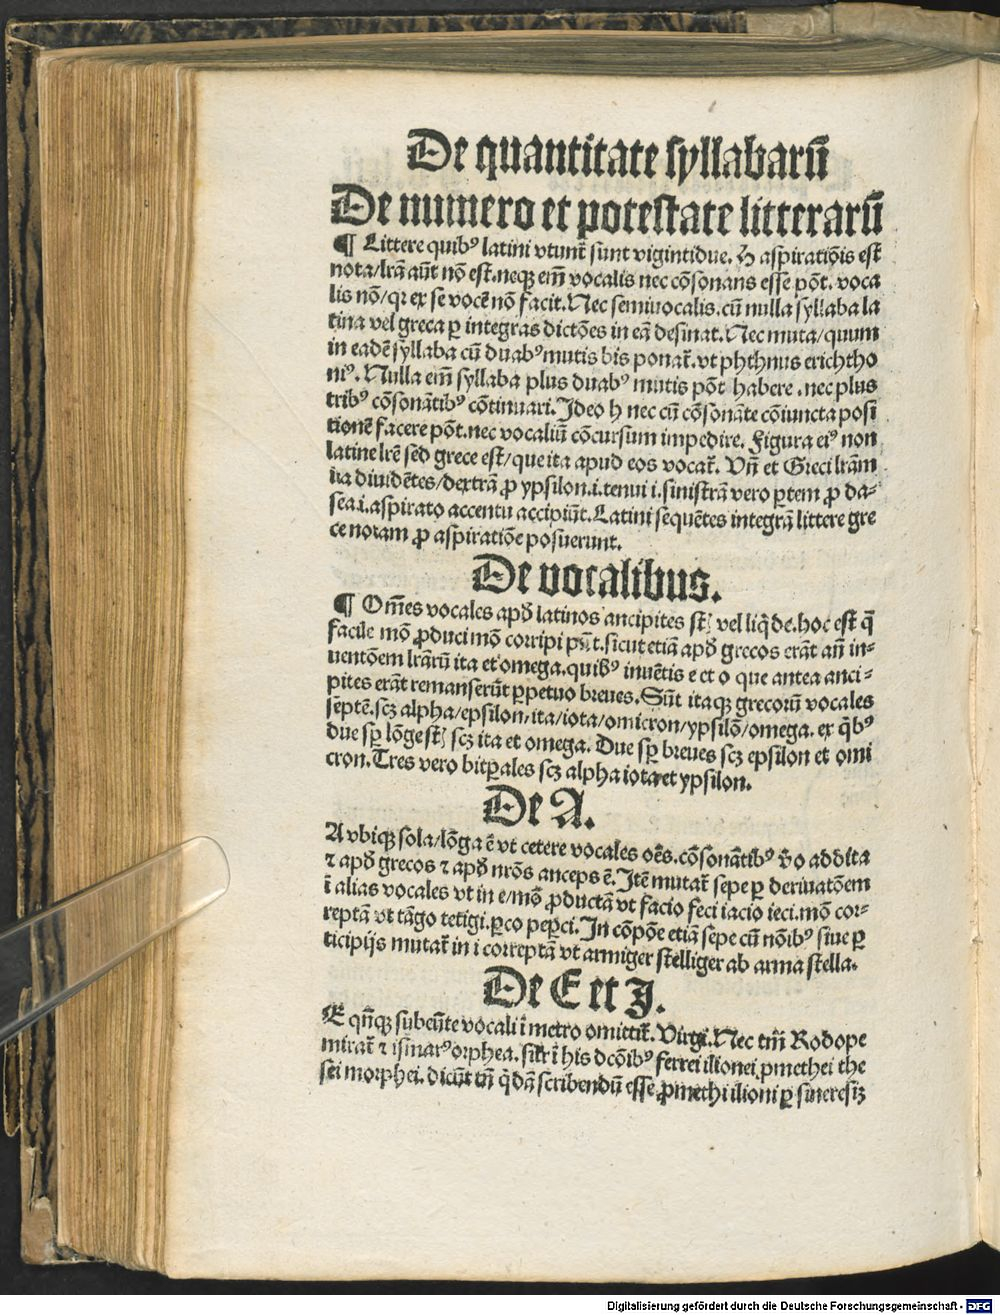 De quantitate syllabarū
De numero et potestate litterarū
¶ Littere quibꝰ latini vtunt᷑ sunt vigintidue. H aspiratiōis est
nota/lrā aūt nō est.neqꝫ em̄ vocalis nec cōsonans esse pōt. voca
lis nō/qr ex se vocē nō facit. Nec semiuocalis.cū nulla syllaba la
tina vel greca ꝑ integras dictōes in eā desinat. Nec muta/quum
in eadē syllaba cū duabꝰ mutis bis ponat᷑. vt phthnus erichtho
niꝰ. Nulla em̄ syllaba plus duabꝰ mutis pōt habere. nec plus
tribꝰ cōsonātibꝰ cōtinuari. Ideo h nec cū cōsonāte cōiuncta posi
tionē facere pōt.nec vocaliū cōcursum impedire. Figura eiꝰ non
latine lrē sed grece est/que ita apud eos vocat᷑. Vn̄ et Greci lrām
ita diuidētes/dextrā ꝓ ypsilon.i.tenui i.sinistrā vero ꝑtem ꝓ da-
sea.i.aspirato accentu accipiūt. Latini sequētes integrā littere gre
ce notam ꝓ aspiratiōe posuerunt.
De vocalibus.
¶ Om̄es vocales apd̓ latinos ancipites st᷑ vel liq̄de.hoc est q̄
facile mō ꝓduci mō corripi pn̄t.sicut etiā apd̓ grecos erāt an̄ in-
uentōem lrārū ita et omega.quibꝰ inuētis e et o que antea anci-
pites erāt remanserūt ꝑpetuo breues. Sūt itaqꝫ grecorū vocales
septē.scꝫ alpha/epsilon/ita/iota/omicron/ypsilō/omega. ex q̄bꝰ
due sꝑ lōge st᷑ scꝫ ita et omega. Due sꝑ breues scꝫ epsilon et omi
cron. Tres vero bitꝑales scꝫ alpha iota et ypsilon.
De A.
A vbiqꝫ sola/lōga ē vt cetere vocales oēs.cōsonātibꝰ v̄o addita
⁊ apd̓ grecos ⁊ apd̓ nrōs anceps ē. Itē mutat᷑ sepe ꝑ deriuatōem
ī alias vocales vt in e/mō ꝓductā vt facio feci iacio ieci.mō cor-
reptā vt tāgo tetigi.ꝑco peꝑci. In cōpōe etiā sepe cū nōibꝰ siue ꝑ
ticipijs mutat᷑ in i correptā vt armiger stelliger ab arma stella.
De E et I.
E qn̄qꝫ subeūte vocali ī metro omittit᷑. Virgi. Nec tm̄ Rodope
mirat᷑ ⁊ ismarꝰ orphea. silr ī his dcōibꝰ ferrei ilionei.ꝓmethei the
sei morphei. dicūt tn̄ q̄dā scribendū esse ꝓmethi ilioni ꝑ sineresiꝫ
Digitalisierung gefördert durch die Deutsche Forschungsgemeinschaft - DFG